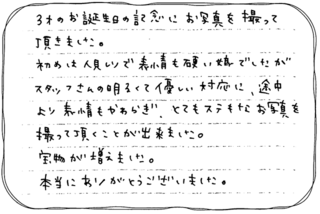 3才のお誕生日の記念にお写真を撮って
頂きました。
初めは人見しりで表情も硬い娘でしたが
スタッフさんの明るくて優しい対応に、途中
より表情もやわらぎ、とてもステキなお写真を
撮って頂くことが出来ました。
宝物が増えました。
本当にありがとうございました。